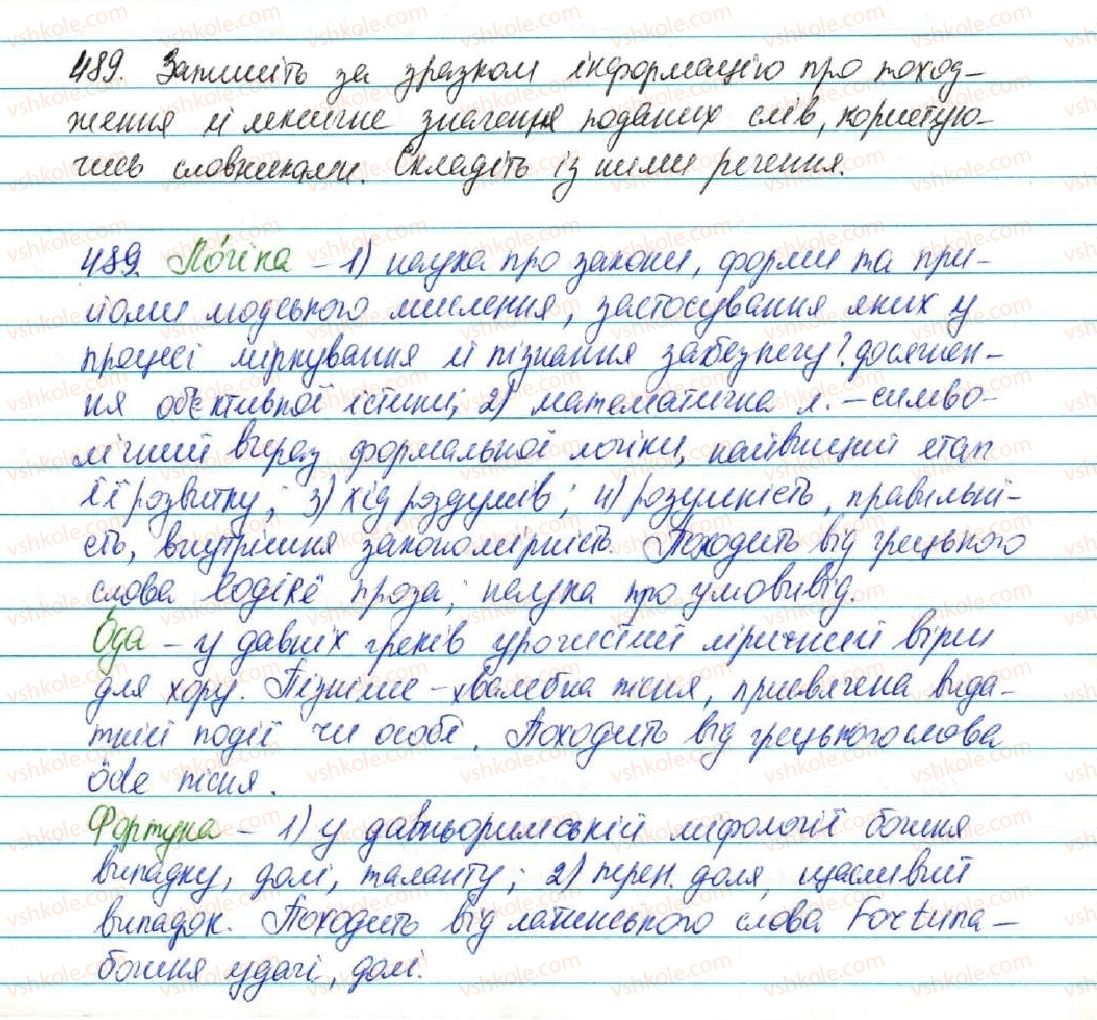 489. Запишіть за зразком інформацію про поход-
ження й лексичне значення поданих слів, користую-
чись словниками. Складіть із ними речення.
489. Ло́гіка – 1) наука про закони, форми та при-
йоми людського мислення, застосування яких у
процесі міркування й пізнання забезпечу? досягнен-
ня об'єктивної істини; 2) математична л. – симво-
лічний вираз формальної логіки, найвищий етап
її розвитку; 3) хід роздумів; 4) розумність, правильні-
сть, внутрішня закономірність. Походить від грецького
слова logikē проза; наука про умовивід.
Ода – у давніх греків урочистий ліричний вірш
для хору. Пізніше – хвалебна пісня, присвячена вида-
тній події чи особі. Походить від грецького слова
ōde пісня.
Фортуна – 1) у давньоримській міфології богиня
випадку, долі, таланту; 2) перен. доля, щасливий
випадок. Походить від латинського слова Fortuna –
богиня удачі, долі.
vshkole.com